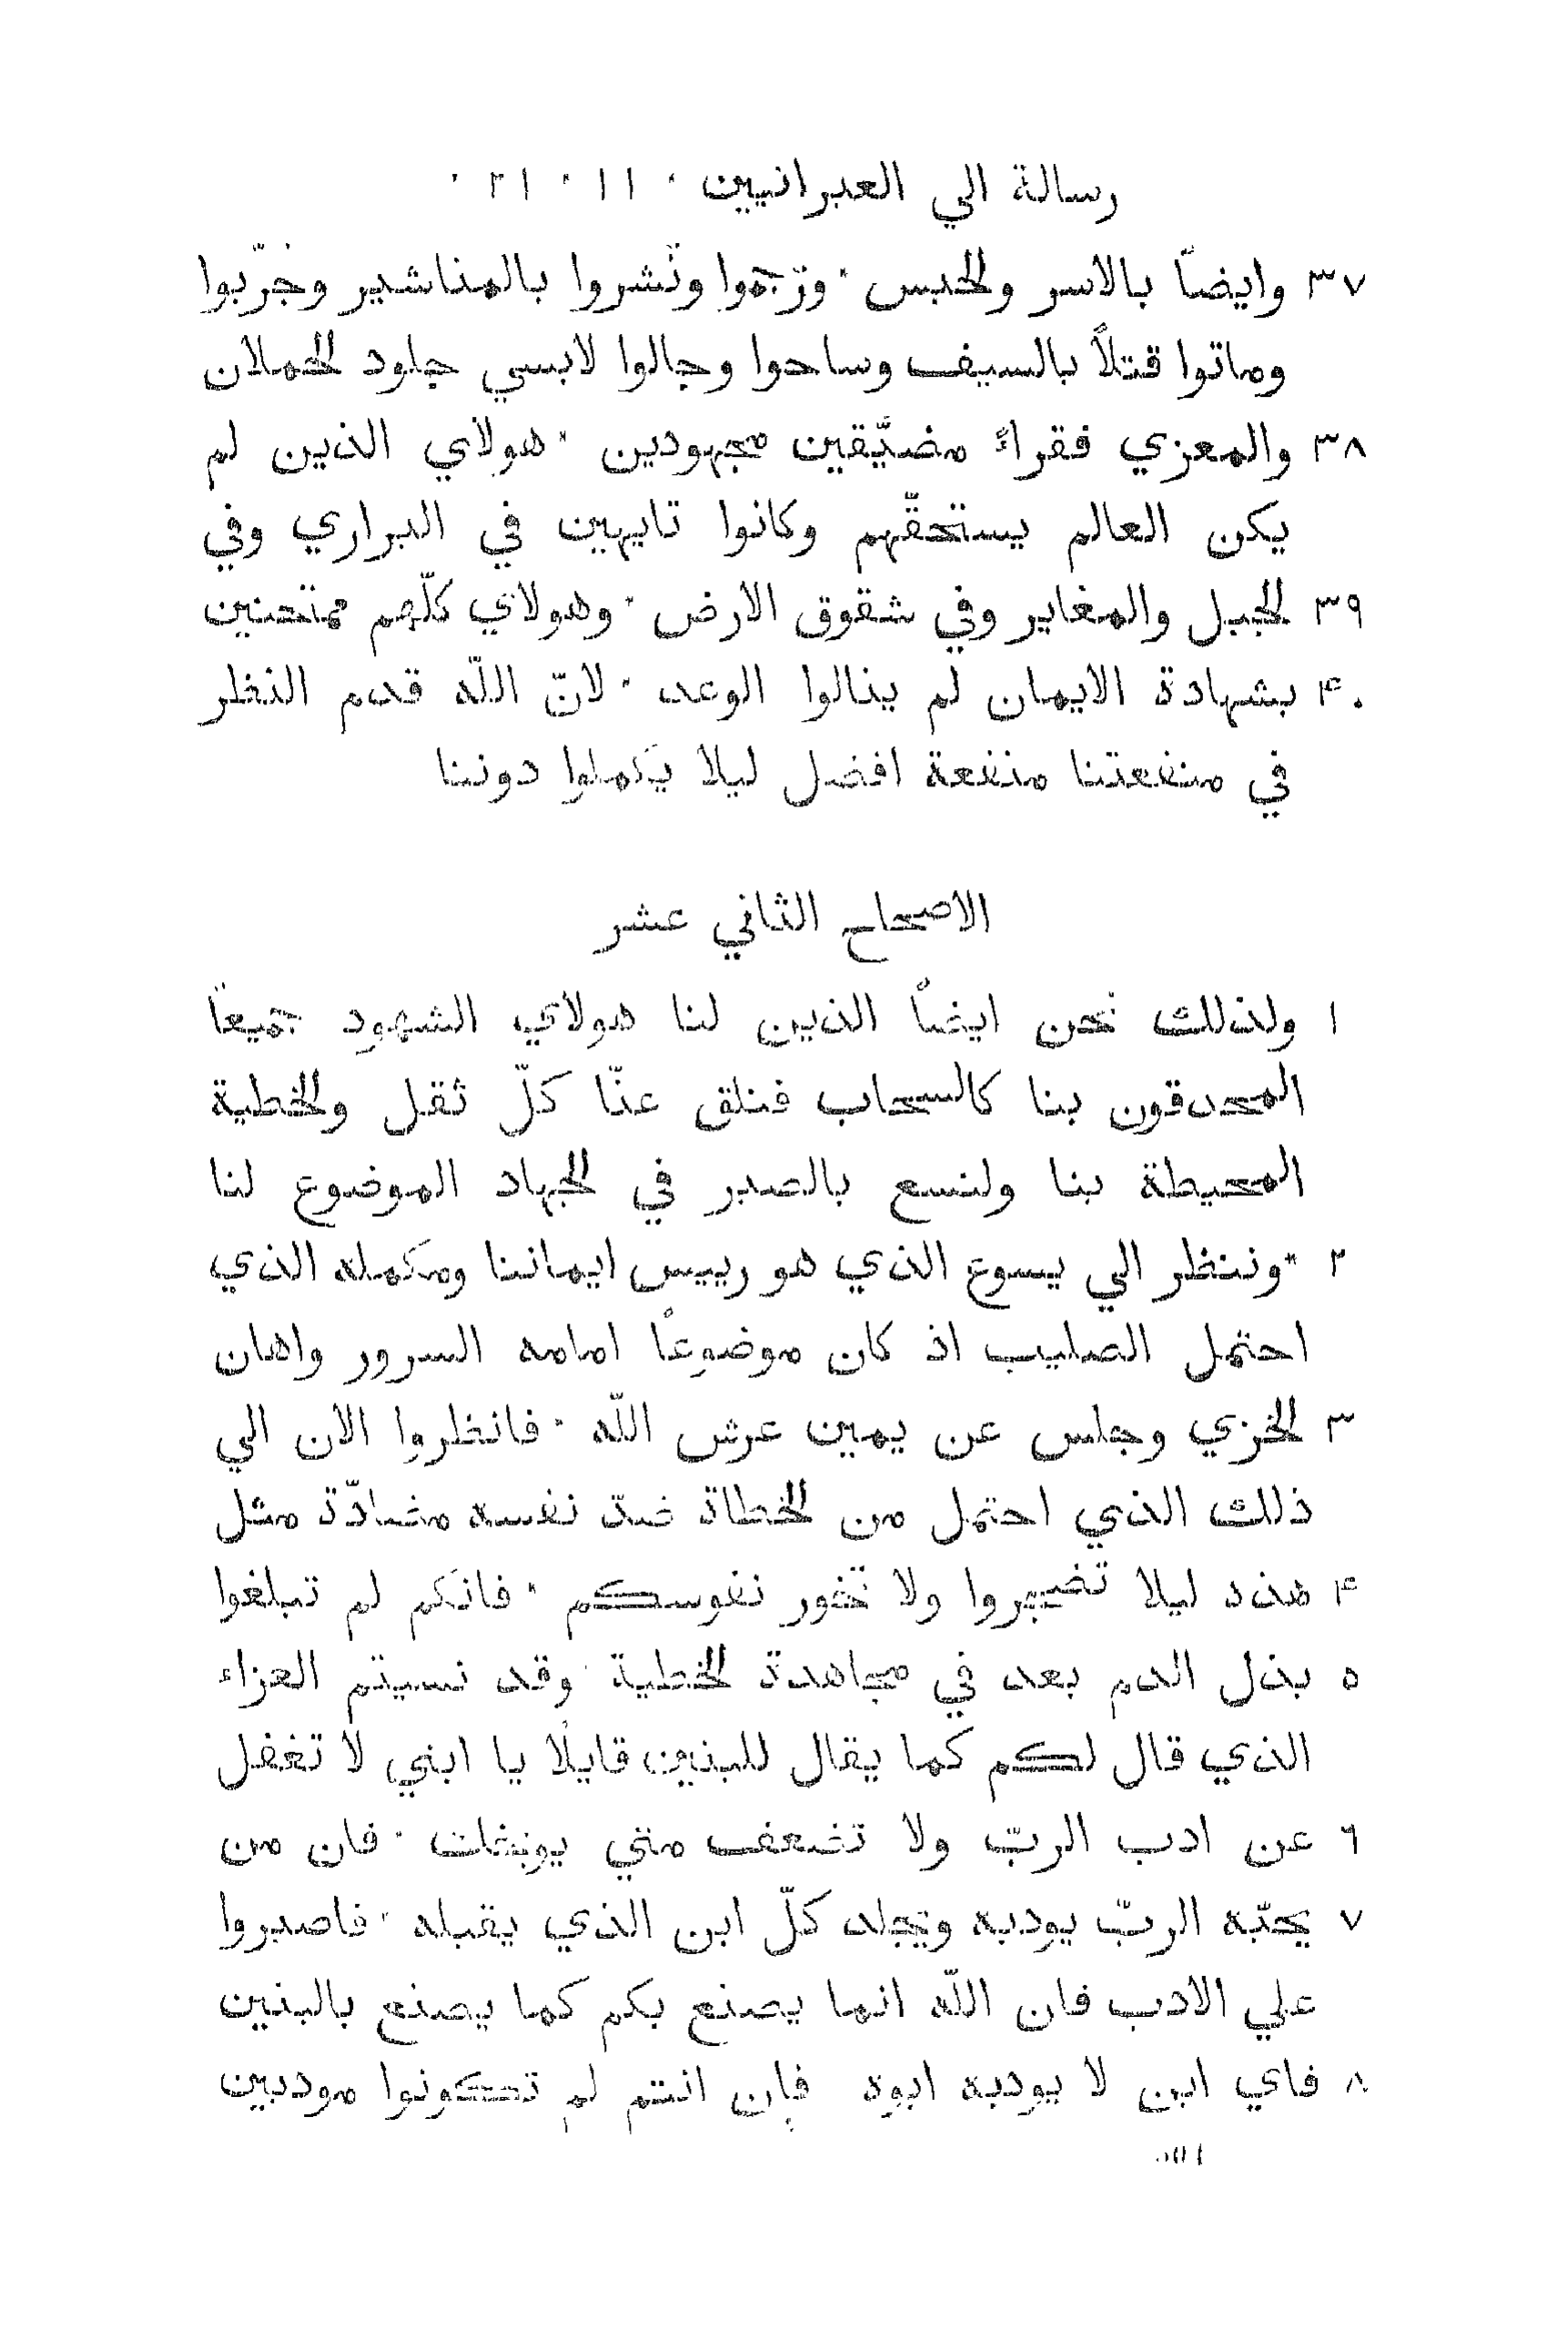 رسالة الي العبرانيين ٠ ١١ ٠ ١٢ ٠
٣٧ وايضاً بالاسر والحبس ٠ ورُجموا ونُشروا بالمناشير وجُرّبوا
وماتوا قتلاً بالسيف وساحوا وجالوا لابسي جلود الحملان
٣٨ والمعزي فقراءً مضيَّقين مجهودين ٠ هولاي الذين لم
يكن العالم يستحقّهم وكانوا تايهين في البراري وفي
٣٩ الجبل والمغاير وفي شقوق الارض ٠ وهولاي كلّهم ممتحنين
٤٠ بشهادة الايمان لم ينالوا الوعد ٠ لانّ اللّه قدم النظر
في منفعتنا منفعة افضل ليلا يكملوا دوننا
الاصحاح الثاني عشر
١ ولذلك نحن ايضاً الذين لنا هولاي الشهود جميعاً
المحدقون بنا كالسحاب فنلق عنّا كلّ ثقل والخطية
المحيطة بنا ولنسع بالصبر في الجهاد الموضوع لنا
٢ ٠ وننظر الي يسوع الذي هو رييس ايماننا ومكمله الذي
احتمل الصليب اذ كان موضوعًا امامه السرور واهان
٣ الخزي وجلس عن يمين عرش اللّه ٠ فانظروا الان الي
ذلك الذي احتمل من الخطاة ضدّ نفسه مضادّة مثل
٤ هذه ليلا تضجروا ولا تخور نفوسكم ٠ فانكم لم تبلغوا
٥ بذل الدم بعد في مجاهدة الخطية ٠ وقد نسيتم العزاء
الذي قال لكم كما يقال للبنين قايلًا يا ابني لا تغفل
٦ عن ادب الربّ ولا تضعف متي يوبخك ٠ فان من
٧ يحبّه الربّ يودبه ويجلد كلّ ابن الذي يقبله ٠ فاصبروا
علي الادب فان اللّه انما يصنع بكم كما يصنع بالبنين
٨ فاي ابن لا يودبه ابوه فان انتم لم تكونوا مودبين